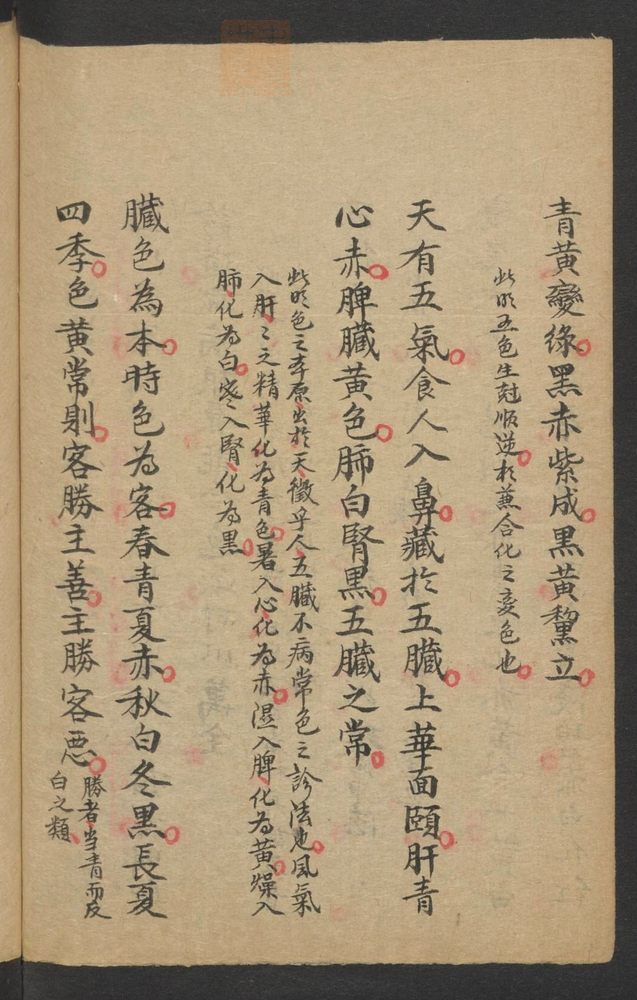 青黃變綠黑赤紫成黑黃黧立
此明五色生尅順逆相兼合化之变色也
天有五氣食人入鼻藏於五臟上華面頤肝青
心赤脾臟黃色肺白腎黑五臟之常
此明色之本原出於天徵乎人五臟不病常色之診法也風氣
入肝〻之精華化為青色暑入心化為赤濕入脾化為黃燥入
肺化為白寒入腎化為黑
臟色為本時色为客春青夏赤秋白冬黑長夏
四季色黃常則客勝主善主勝客悪
勝者当青而反
白之類